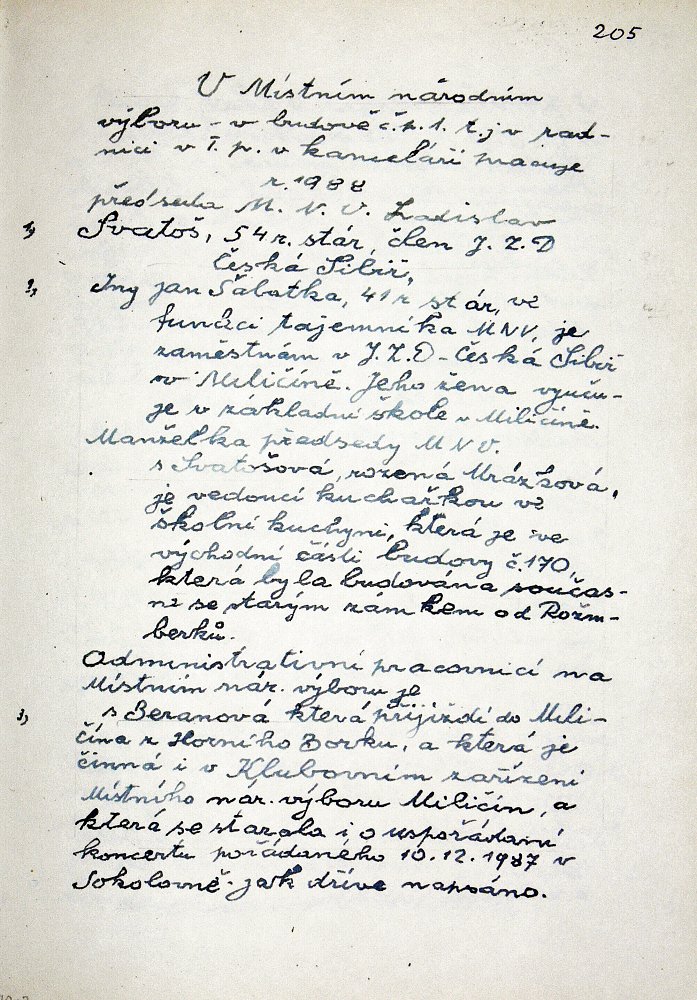 205
V Místním národním
výboru - v budově č.p. 1. t.j v rad-
nici v I. p. v kanceláři pracuje
r. 1988
předseda M. N. V. Ladislav
1, Svatoš, 54 r. stár, člen J. Z. D
Česká Sibiř,
2, Ing Jan Šabatka, 41 r stár, ve
funkci tajemníka MNV, je
zaměstnám v J.Z.D - Česká Sibiř
v Miličíně. Jeho žena vyuču-
je v základní škole v Miličíně.
Manželka předsedy M N V.
s Svatošová, rozená Mrázková,
je vedoucí kuchařkou ve
školní kuchyni, která je ve
východní části budovy č. 170,
která byla budována součas-
ně se starým zámkem od Rožm-
berků.
Administrativní pracovnicí na
Místním nár. výboru je
3, s Beranová která přijíždí do Mili-
čína z Horního Borku, a která je
činná i v Klubovním zařízení
Místního nár. výboru Miličín, a
která se starala i o uspořádání
koncertu pořádaného 10.12.1987 v
Sokolovně - jak dříve napsáno.